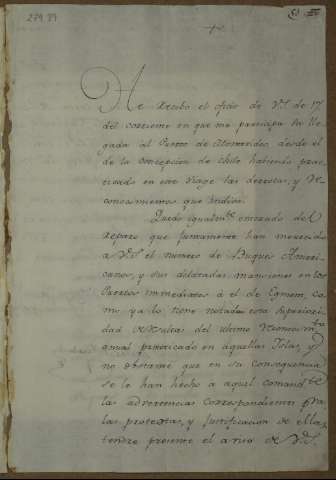 279.99
He recibo el ofizio de V.S. de 17
del corriente en que me participa su lle-
gada al Puerto de Montevideo desde el
de la Concepcion de Chile habiendo prac-
ticado en este viage las derrotas, y re-
conocimientos que indica.
Quedo igualmte enterado del
reparo que justamente han merecido
a V.S. el numero de Buques America-
nos, y sus dilatadas mansiones en los
Puertos inmediatos á el de Egmon, co-
mo ya lo tiene notado esta superiori-
dad resultas del ultimo reconocimto
anual practicado en aquellas Islas, y
no obstante que en su consequencia
se le han hecho a aquel comandte
las advertencias correspondientes pra
las protestas, y justificacion de ellas,
tendre presente el aviso de V.S.